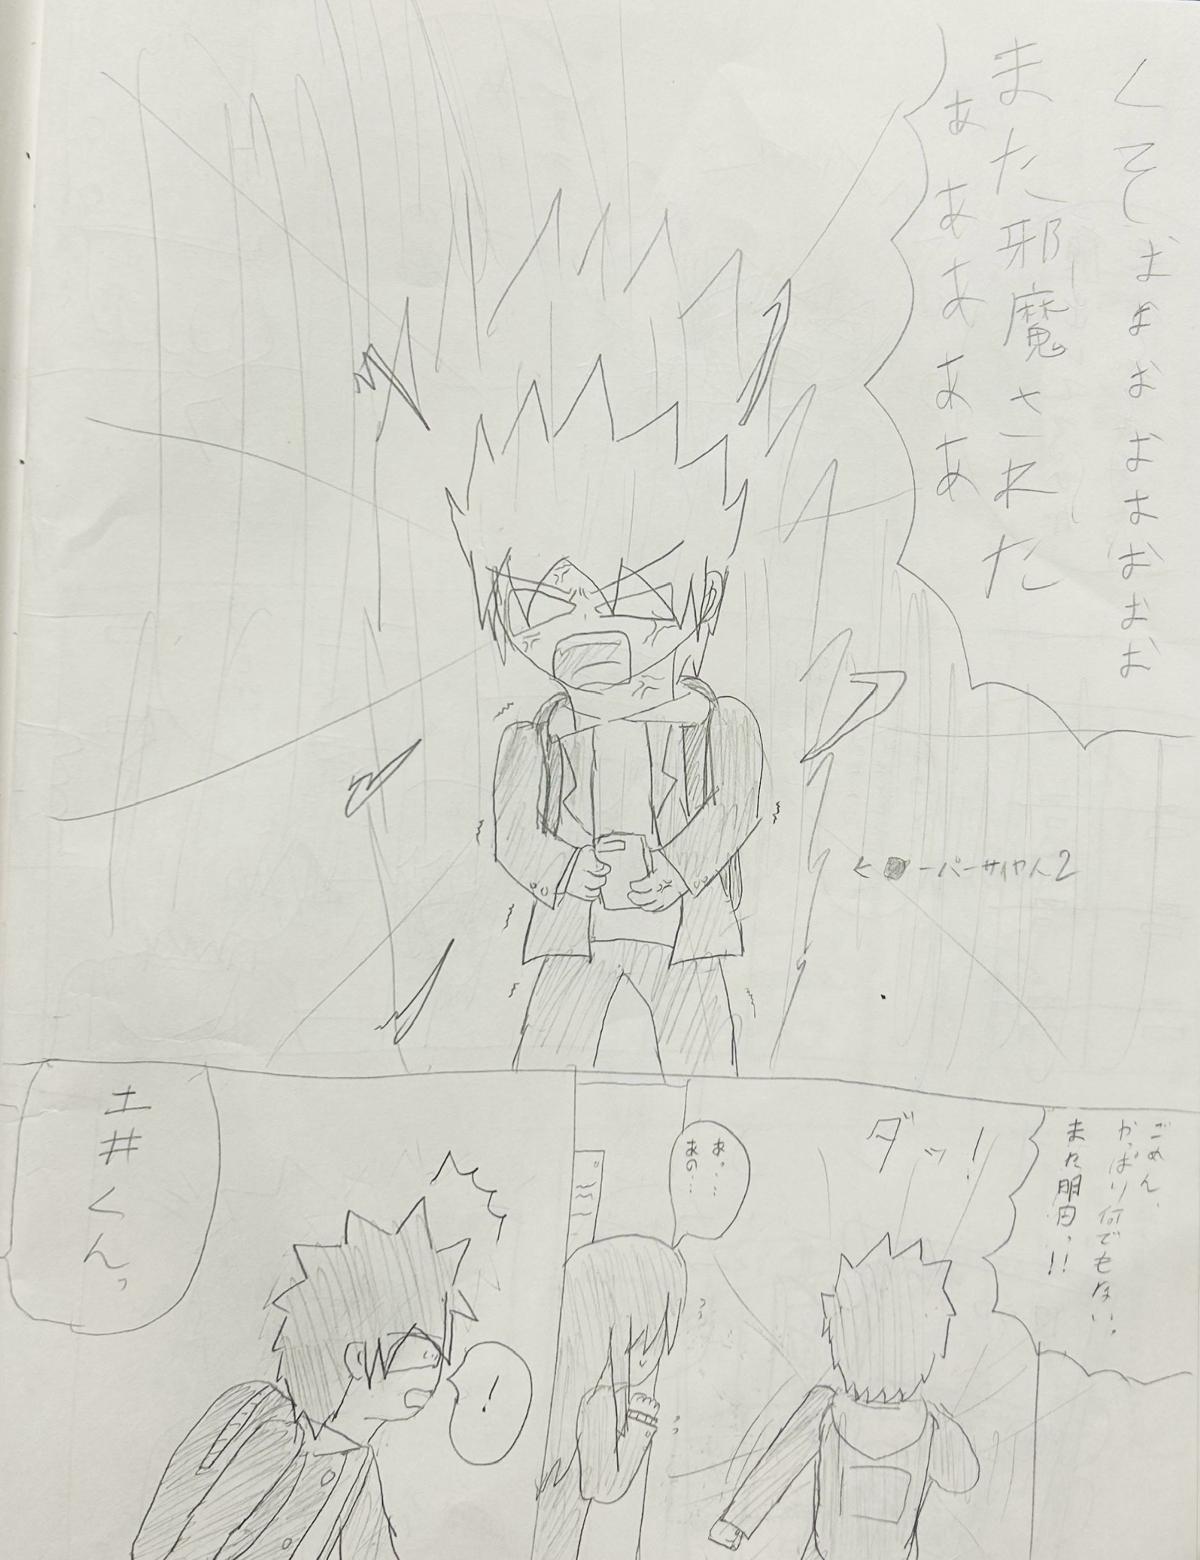 くそぉぉぉぉぉぉぉぉ
また邪魔された
ぁぁぁぁぁ
←■ーパーサイヤ人2
ごめん、
やっぱり何でもない。
また明日っ!!
ダッ!
あ…
あの…
!
土井くんっ